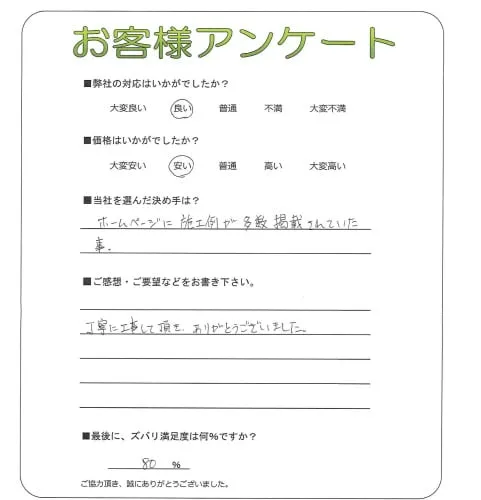 お客様アンケート
■弊社の対応はいかがでしたか？
大変良い 良い 普通 不満 大変不満
■価格はいかがでしたか？
大変安い 安い 普通 高い 大変高い
■当社を選んだ決め手は？
ホームページに施工例が多数掲載されていた
事。
■ご感想・ご要望などをお書き下さい。
丁寧に工事して頂き、ありがとうございました。
■最後に、ズバリ満足度は何%ですか？
80 %
ご協力頂き、誠にありがとうございました。